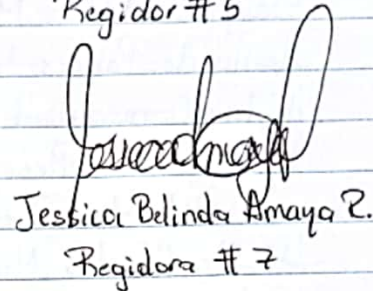 Regidor #5
Jessica Belinda Amaya R.
Regidora #7